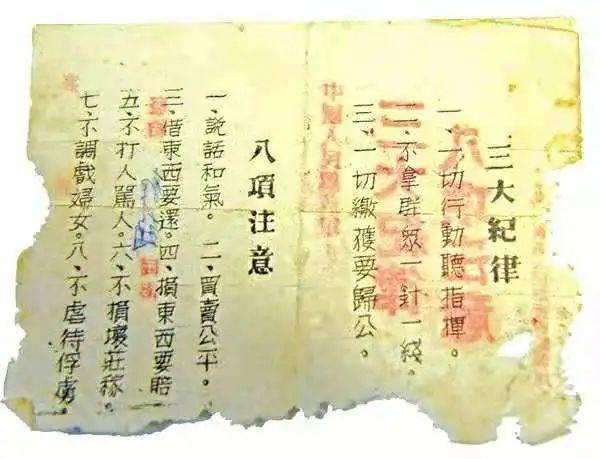 三大紀律
一、一切行動聽指揮。
二、不拿群眾一針一綫。
三、一切繳獲要歸公。
八項注意
一、説話和氣。 二、買賣公平。
三、借東西要還。四、損東西要賠
五、不打人罵人。六、不損壞莊稼。
七、不調戲婦女。八、不虐待俘虜。